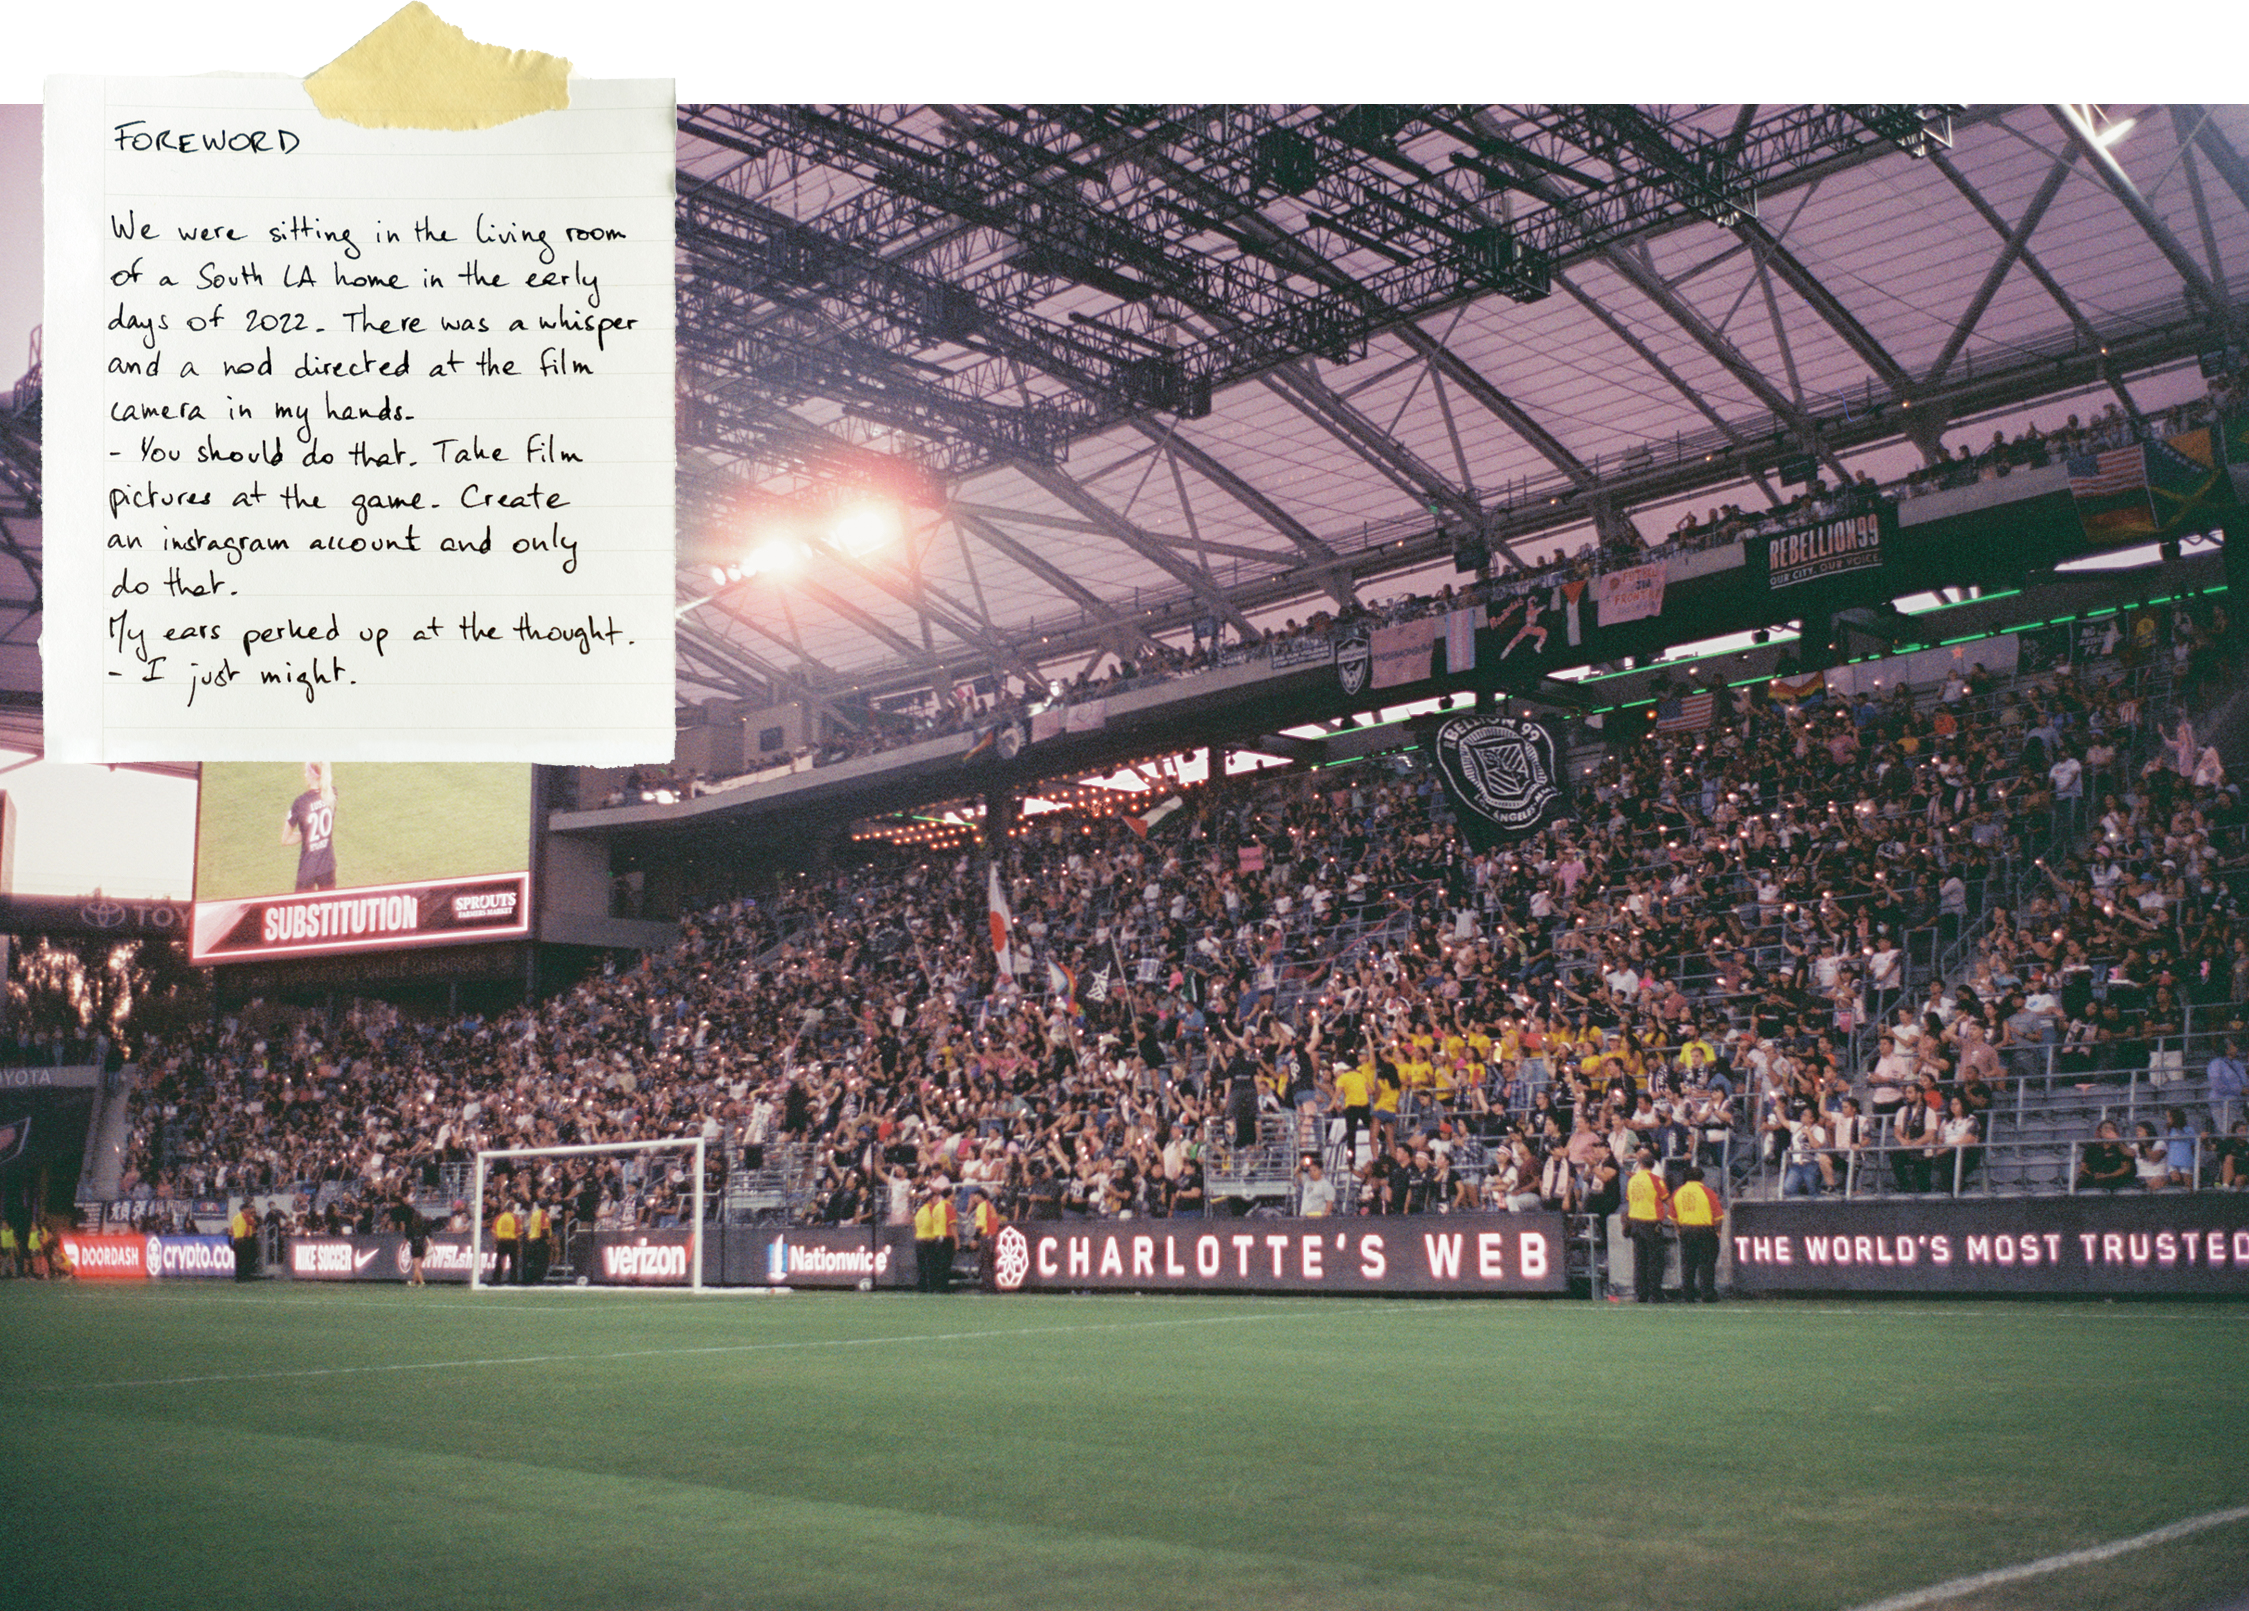 FOREWORD
We were sitting in the living room
of a South LA home in the early
days of 2022. There was a whisper
and a nod directed at the film
camera in my hands.
- You should do that. Take film
pictures at the game. Create
an instagram account and only
do that.
My ears perked up at the thought.
- I just might.
REBELLION99
OUR CITY. OUR VOICE.
REBELLION 99
ANGELES
20
SUBSTITUTION
SPROUTS
FARMERS MARKET
TOY
OYOTA
DOORDASH
crypto.co
NIKE SOCCER
verizon
Nationwide
CHARLOTTE'S WEB
THE WORLD'S MOST TRUSTED